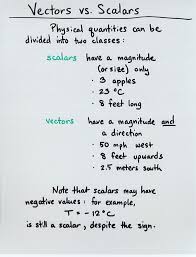 Vectors vs. Scalars
Physical quantities can be
divided into two classes:
scalars have a magnitude
(or size) only
• 3 apples
• 23 °C
• 8 feet long
vectors have a magnitude and
a direction
• 50 mph west
• 8 feet upwards
• 2.5 meters south
Note that scalars may have
negative values: for example,
T = -12°C
is still a scalar, despite the sign.